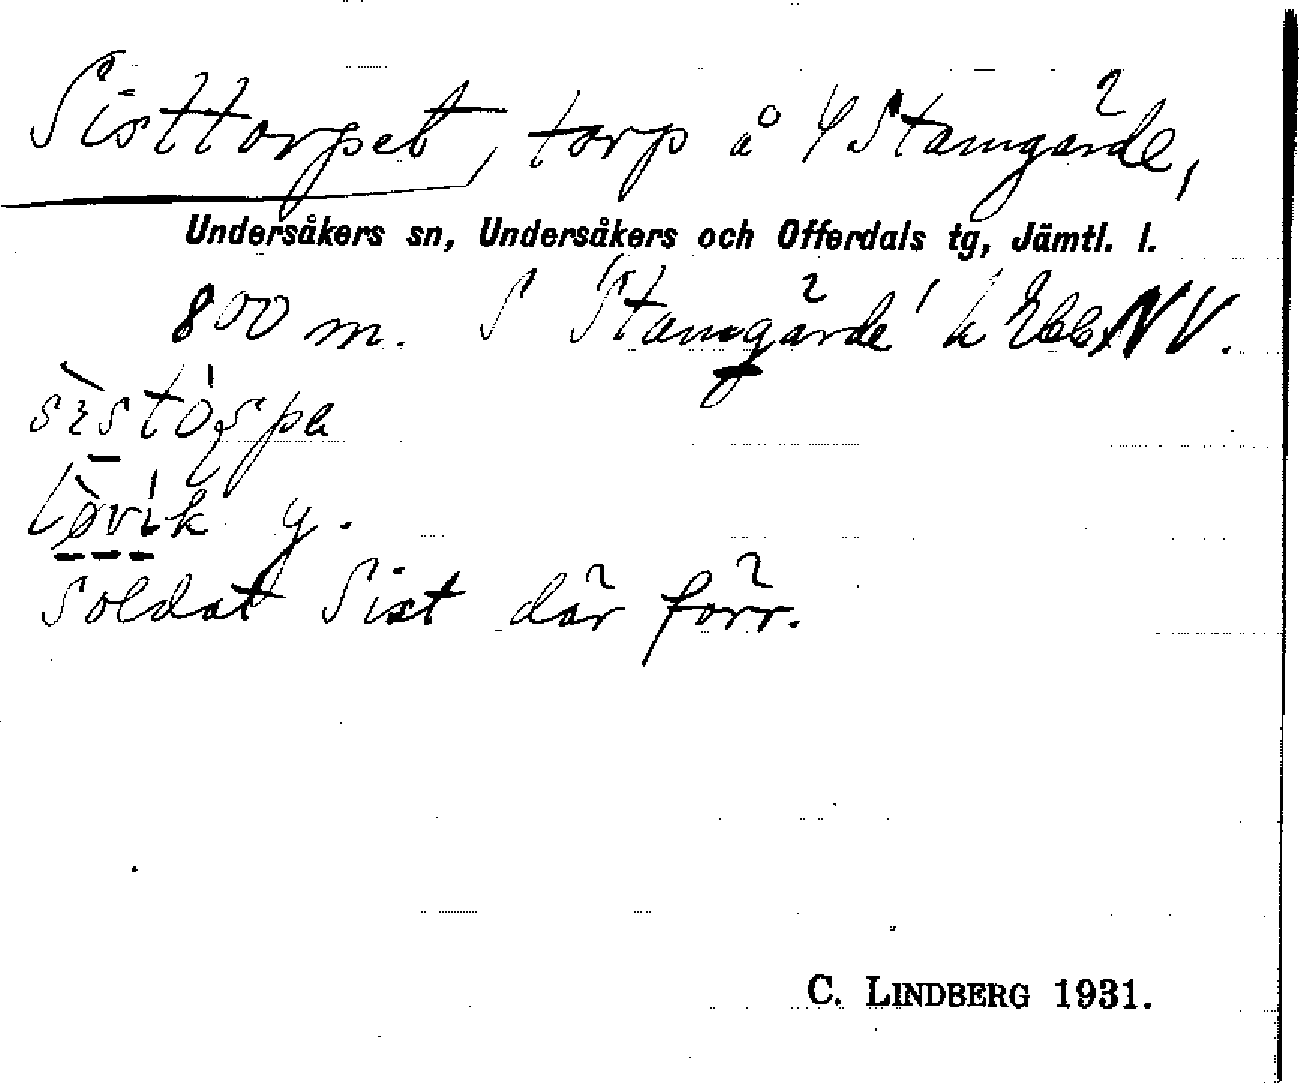 Sisttorpet, torp å 4 Stamgärde,
Undersåkers sn, Undersåkers och Offerdals tg, Jämtl. l.
800 m. S "Stamgärde" k EbbNV.
sìstó̜spa
lø̀vík y.
Soldat Sist där förr.
C. LINDBERG 1931.